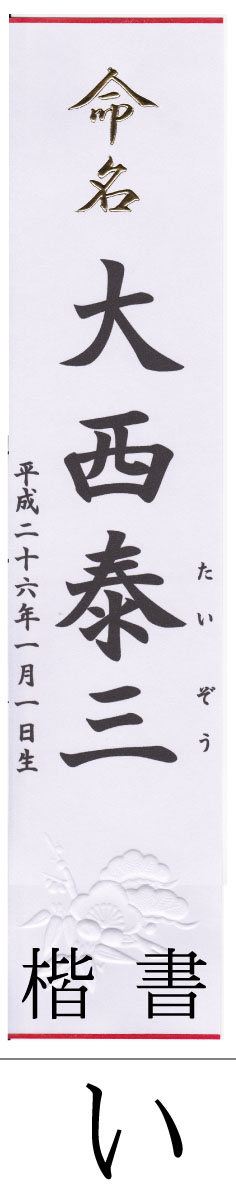 命名
大西泰三
たいぞう
平成二十六年一月一日生
楷書
い